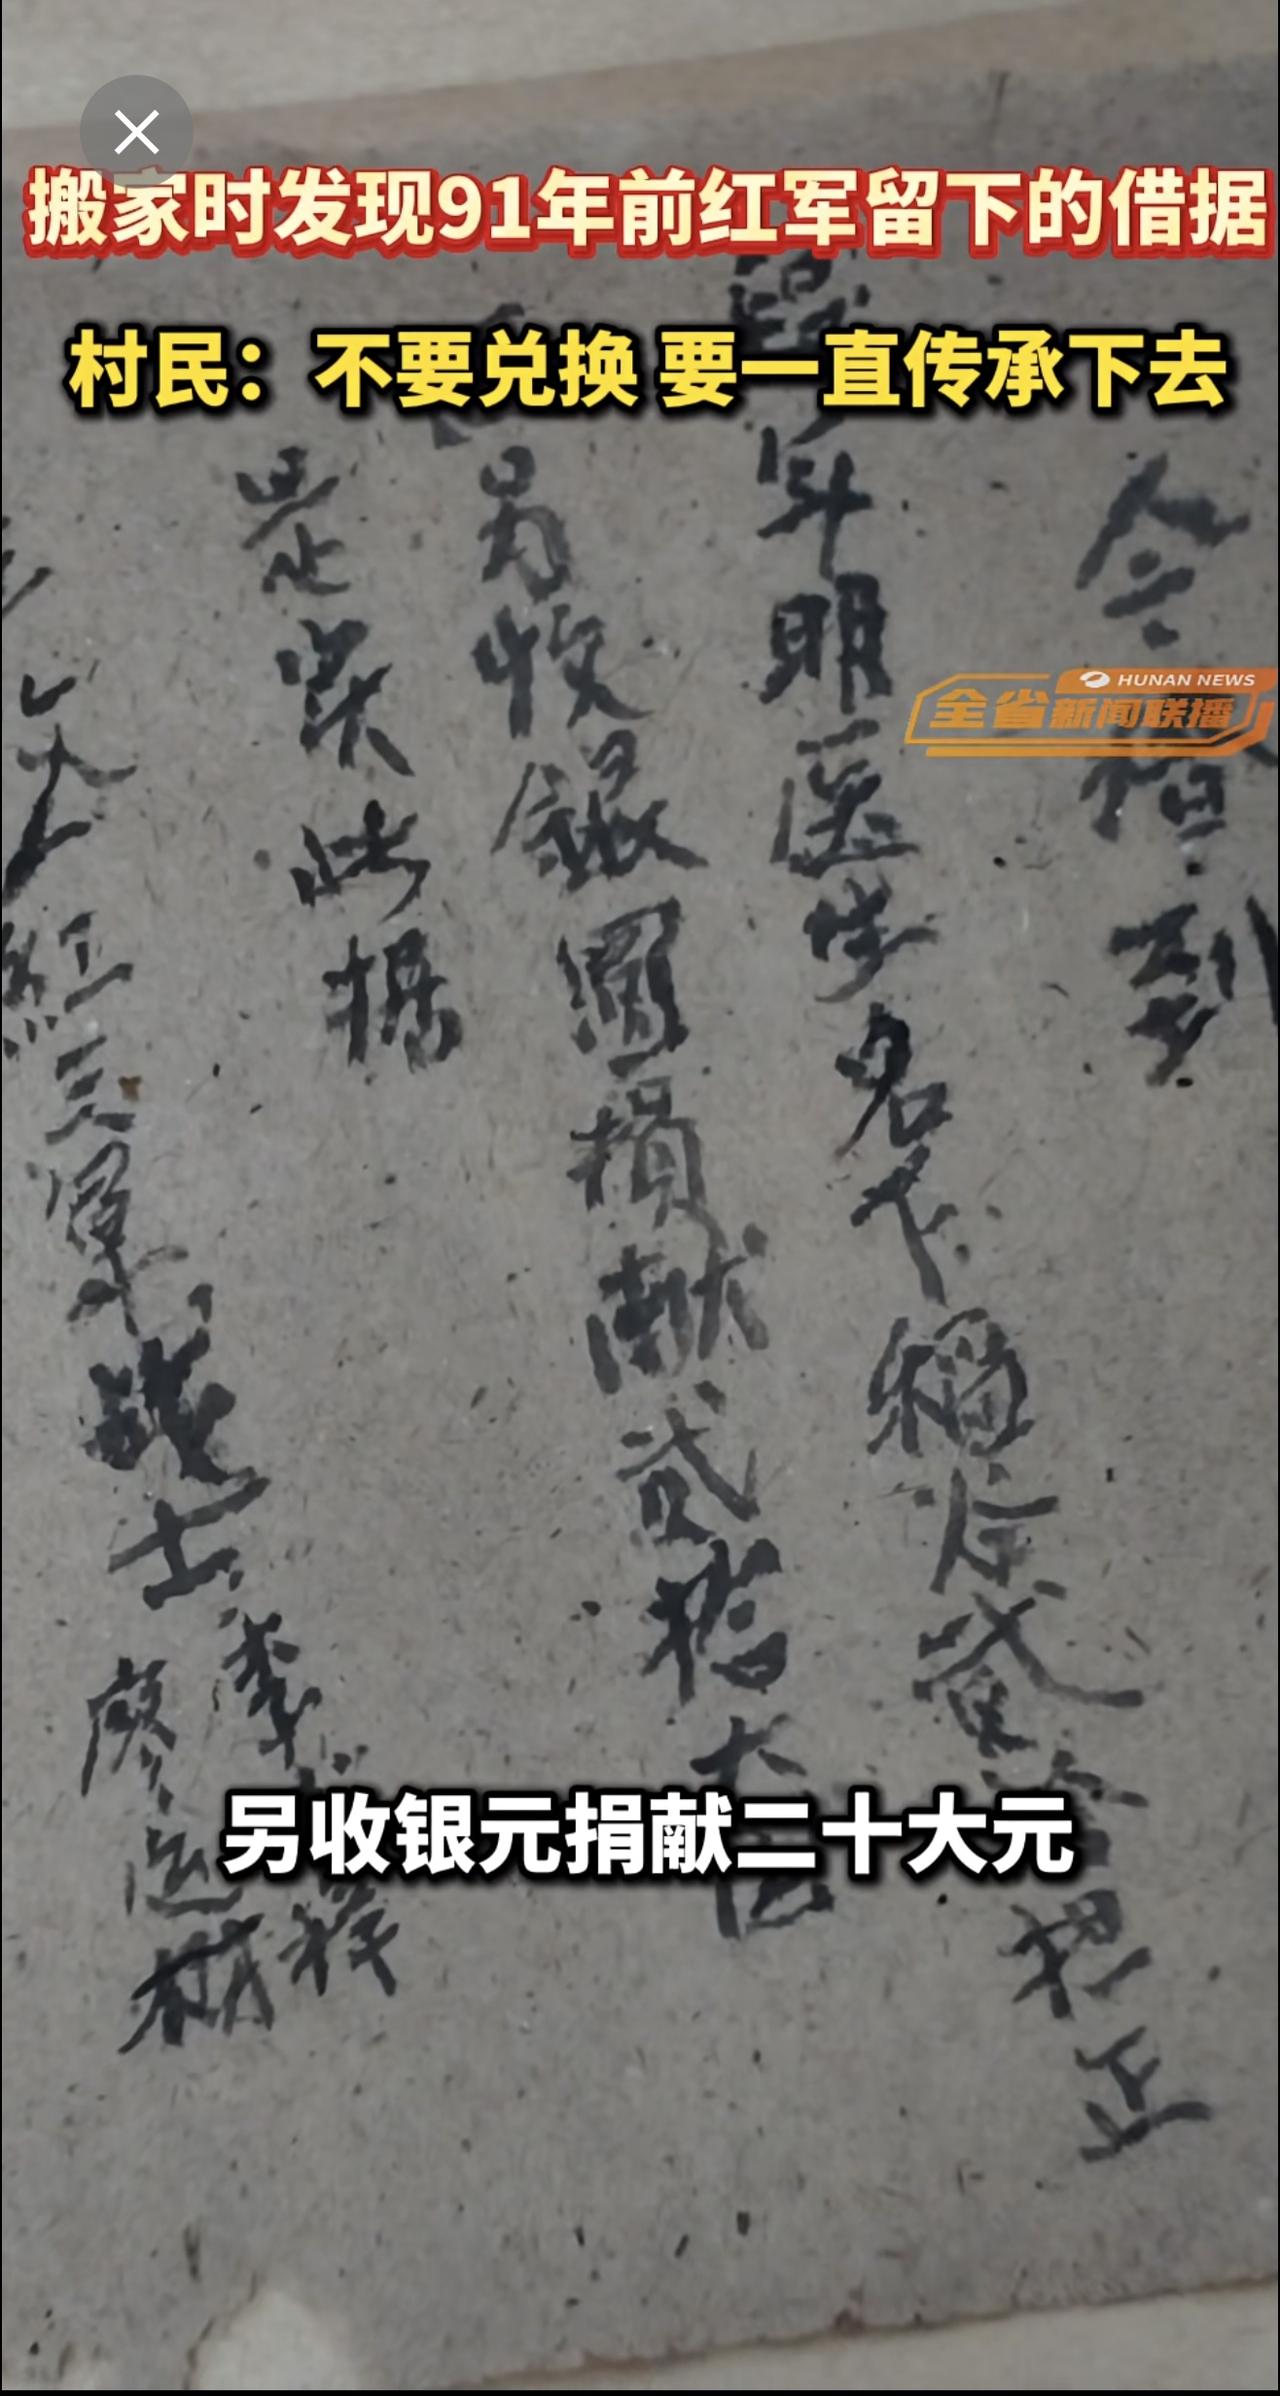 搬家时发现91年前红军留下的借据
村民：不要兑换 要一直传承下去
HUNAN NEWS
全省新闻联播
今借到
年明医生名下稻谷贰石担正
另收銀圓捐献贰拾大
是实此据
紅三軍战士
廖
另收银元捐献二十大元